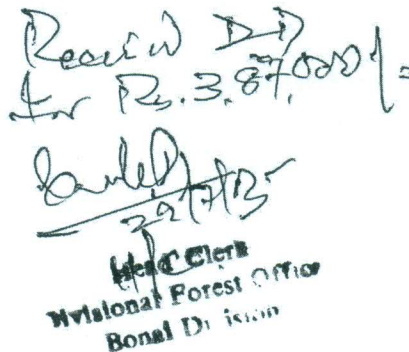 Received DD
for Rs. 3,87,000/=
22/7/13
Head Clerk
Divisional Forest Officer
Bonai Division